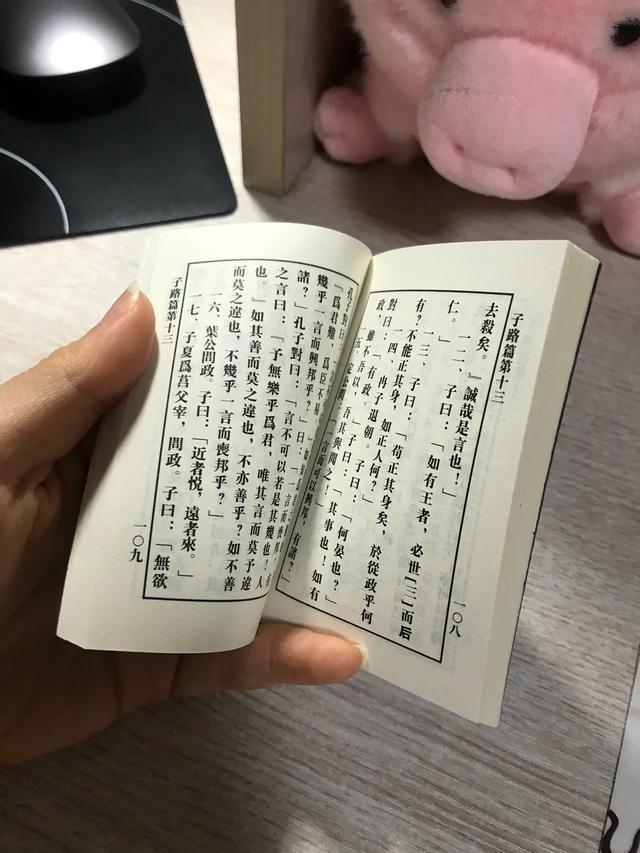 子路篇第十三
去殺矣。』誠哉是言也！」
一二、子曰：「如有王者，必世[三]而后
仁。」
一三、子曰：「苟正其身矣，於從政乎何
有？不能正其身，如正人何？」
一四、冉子退朝。子曰：「何晏也？」
對曰：「有政。」子曰：「其事也！如有
政，雖不吾以，吾其與聞之！」
五、定公問：「一言而可以興邦，有諸？」
一〇八
孔子對曰：
『爲君難，爲臣不易。』
幾乎一言而興邦乎？」曰：「一言而喪邦
諸？」孔子對曰：「言不可以若是其幾也！人
之言曰：『予無樂乎爲君，唯其言而莫予違
也。』如其善而莫之違也，不亦善乎？如不善
而莫之違也，不幾乎一言而喪邦乎？」
一六、葉公問政。子曰：「近者悅，遠者來。」
一七、子夏爲莒父宰，問政。子曰：「無欲
子路篇第十三
一〇九